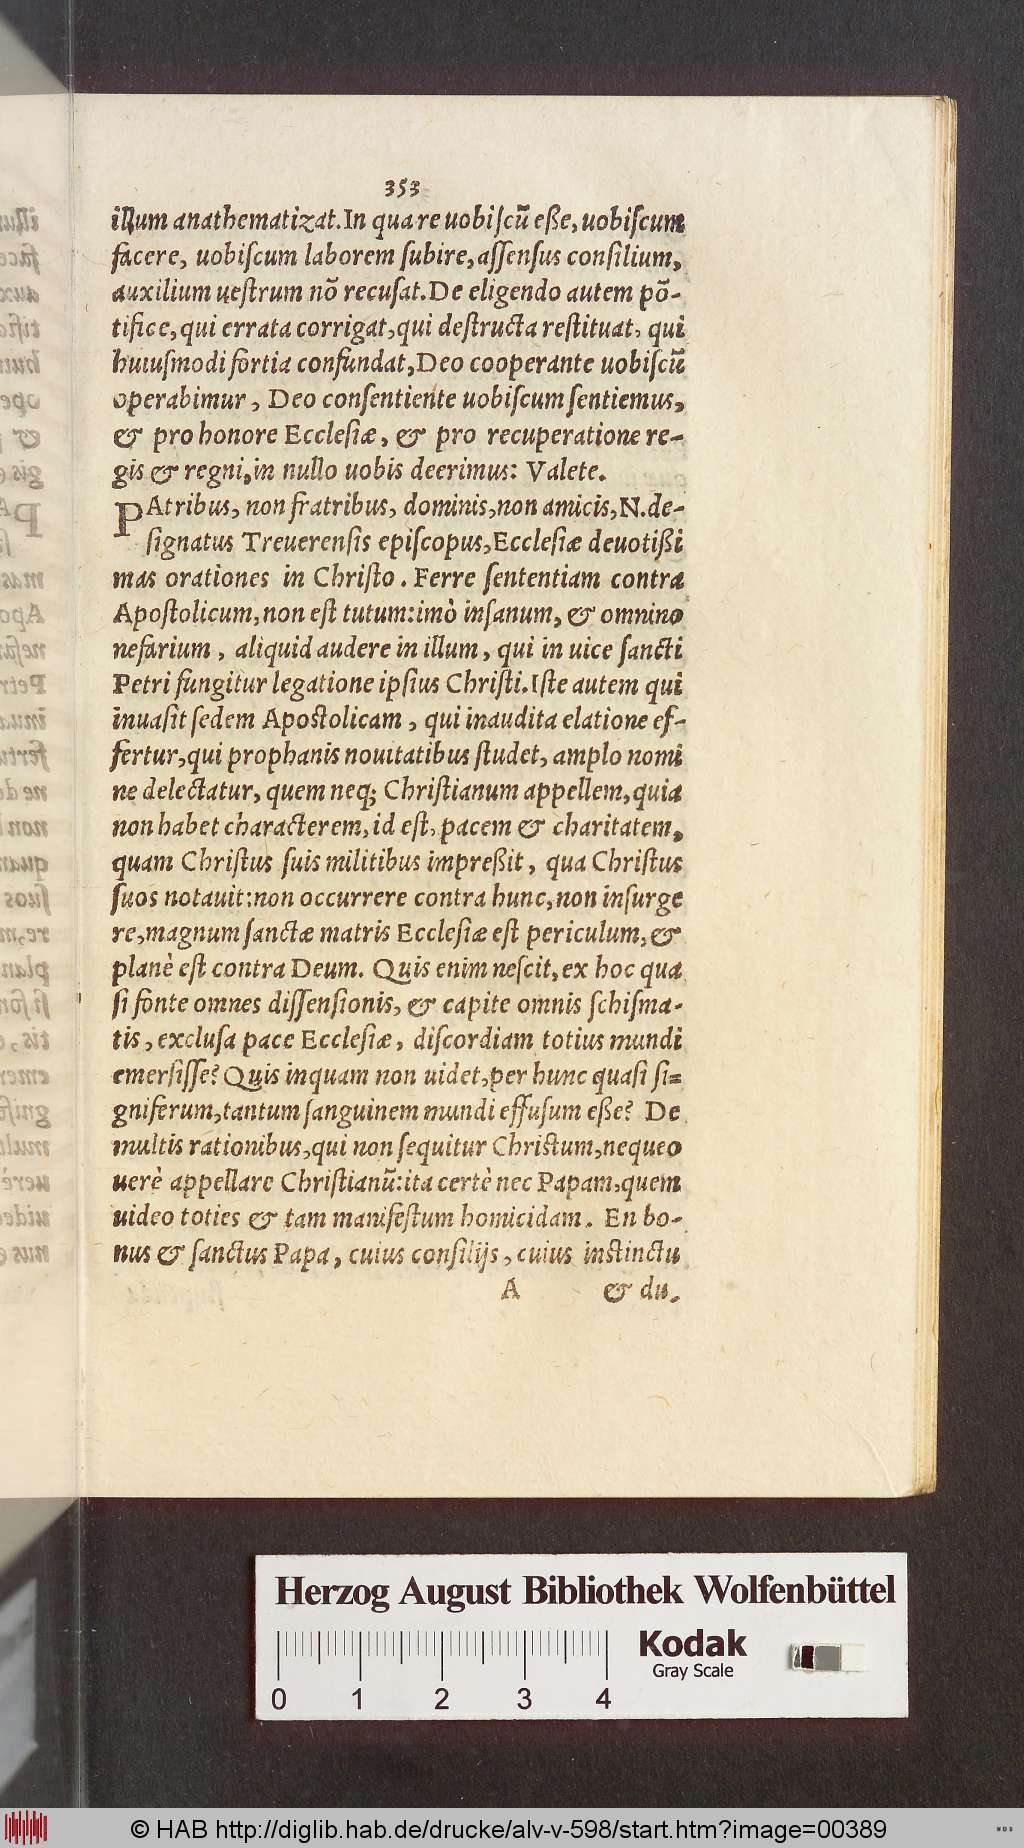 353
illum anathematizat.In quare uobiſcũ eße, uobiſcum
facere, uobiſcum laborem ſubire, aſſenſus conſilium,
auxilium ueſtrum nõ recuſat.De eligendo autem põ-
tifice, qui errata corrigat, qui deſtructa reſtituat, qui
huiuſmodi fortia confundat, Deo cooperante uobiſcũ
operabimur, Deo conſentiente uobiſcum ſentiemus,
& pro honore Eccleſiæ, & pro recuperatione re-
gis & regni, in nullo uobis deerimus: Valete.
PAtribus, non fratribus, dominis, non amicis, N. de-
ſignatus Treuerenſis epiſcopus, Eccleſiæ deuotißi
mas orationes in Chriſto. Ferre ſententiam contra
Apoſtolicum, non eſt tutum: imò inſanum, & omnino
nefarium, aliquid audere in illum, qui in uice ſancti
Petri fungitur legatione ipſius Chriſti. Iſte autem qui
inuaſit ſedem Apoſtolicam, qui inaudita elatione ef-
fertur, qui prophanis nouitatibus ſtudet, amplo nomi
ne delectatur, quem neq; Chriſtianum appellem, quia
non habet characterem, id eſt, pacem & charitatem,
quam Chriſtus ſuis militibus impreßit, qua Chriſtus
ſuos notauit: non occurrere contra hunc, non inſurge
re, magnum ſanctæ matris Eccleſiæ eſt periculum, &
planè eſt contra Deum. Quis enim neſcit, ex hoc qua
ſi fonte omnes diſſenſionis, & capite omnis ſchiſma-
tis, excluſa pace Eccleſiæ, diſcordiam totius mundi
emerſiſſe? Quis inquam non uidet, per hunc quaſi ſi-
gniferum, tantum ſanguinem mundi effuſum eße? De
multis rationibus, qui non ſequitur Chriſtum, nequeo
uerè appellare Chriſtianũ: ita certè nec Papam, quem
uideo toties & tam manifeſtum homicidam. En bo-
nus & ſanctus Papa, cuius conſilijs, cuius inſtinctu
A & du-
Herzog August Bibliothek Wolfenbüttel
Kodak
Gray Scale
0 1 2 3 4
© HAB http://diglib.hab.de/drucke/alv-v-598/start.htm?image=00389